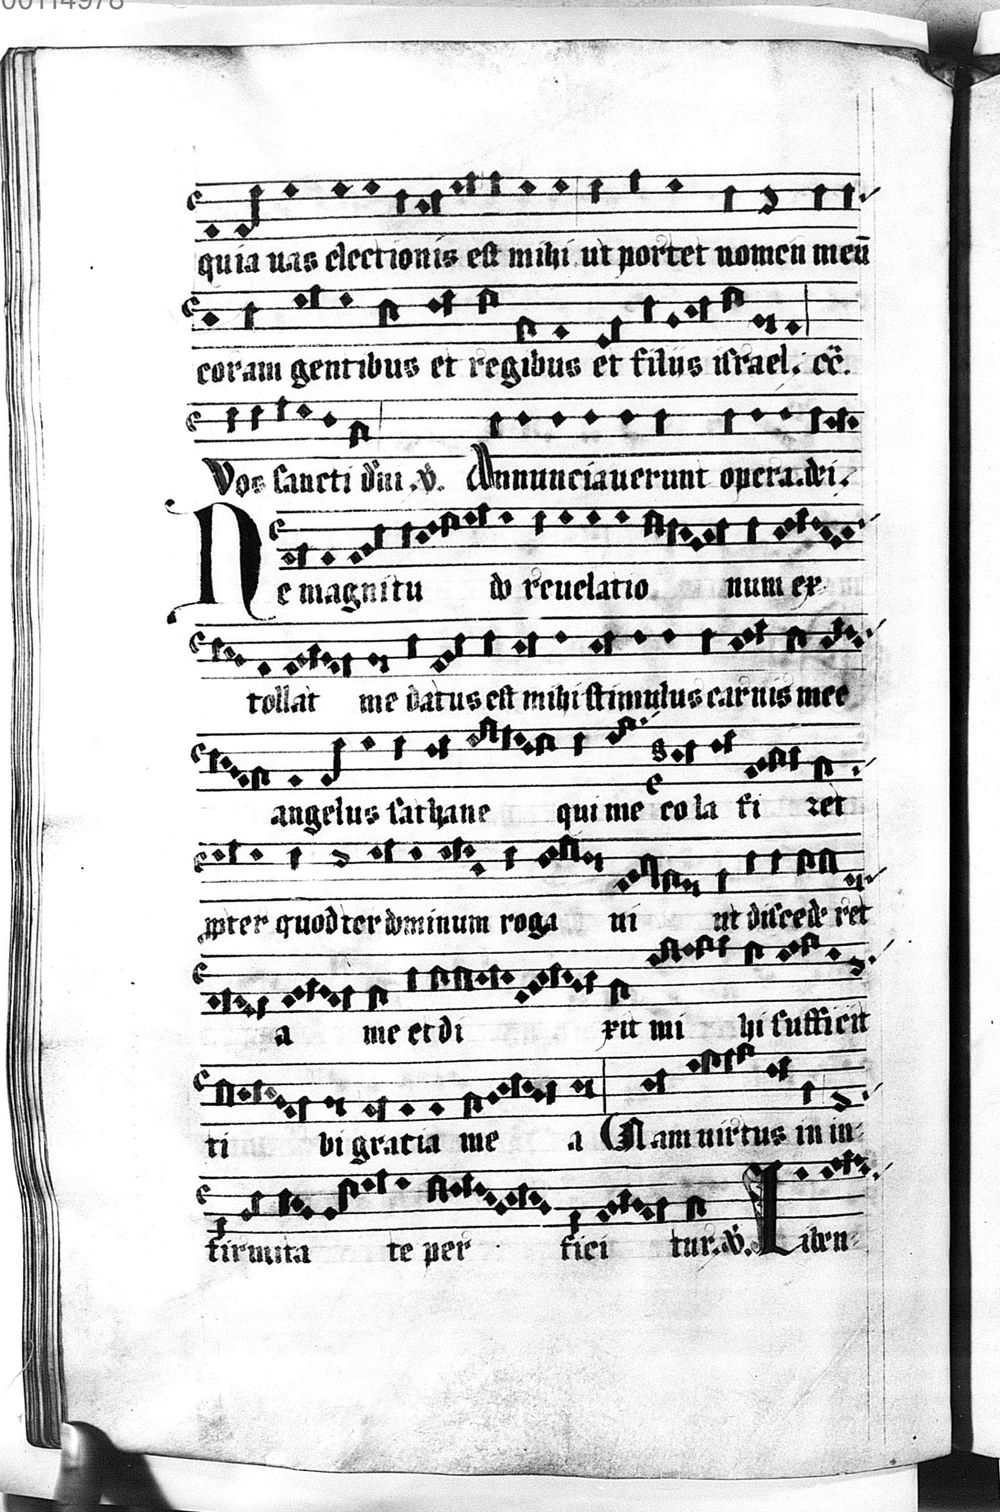 00114978
quia uas electionis est mihi ut portet nomen meū
coram gentibus et regibus et filijs israel. cc̄.
Vos sancti dn̄i .v̄. Annunciauerunt opera.dei.
Ne magnitu do reuelatio num ex
tollat me datus est mihi stimulus carnis mee
angelus sathane qui me co la fi zet
ꝓpter quod ter dominum roga ui ut discede ret
a me et di xit mi hi sufficit
ti bi gratia me a Nam uirtus in in
firmita te per fici tur.v̄. Liben